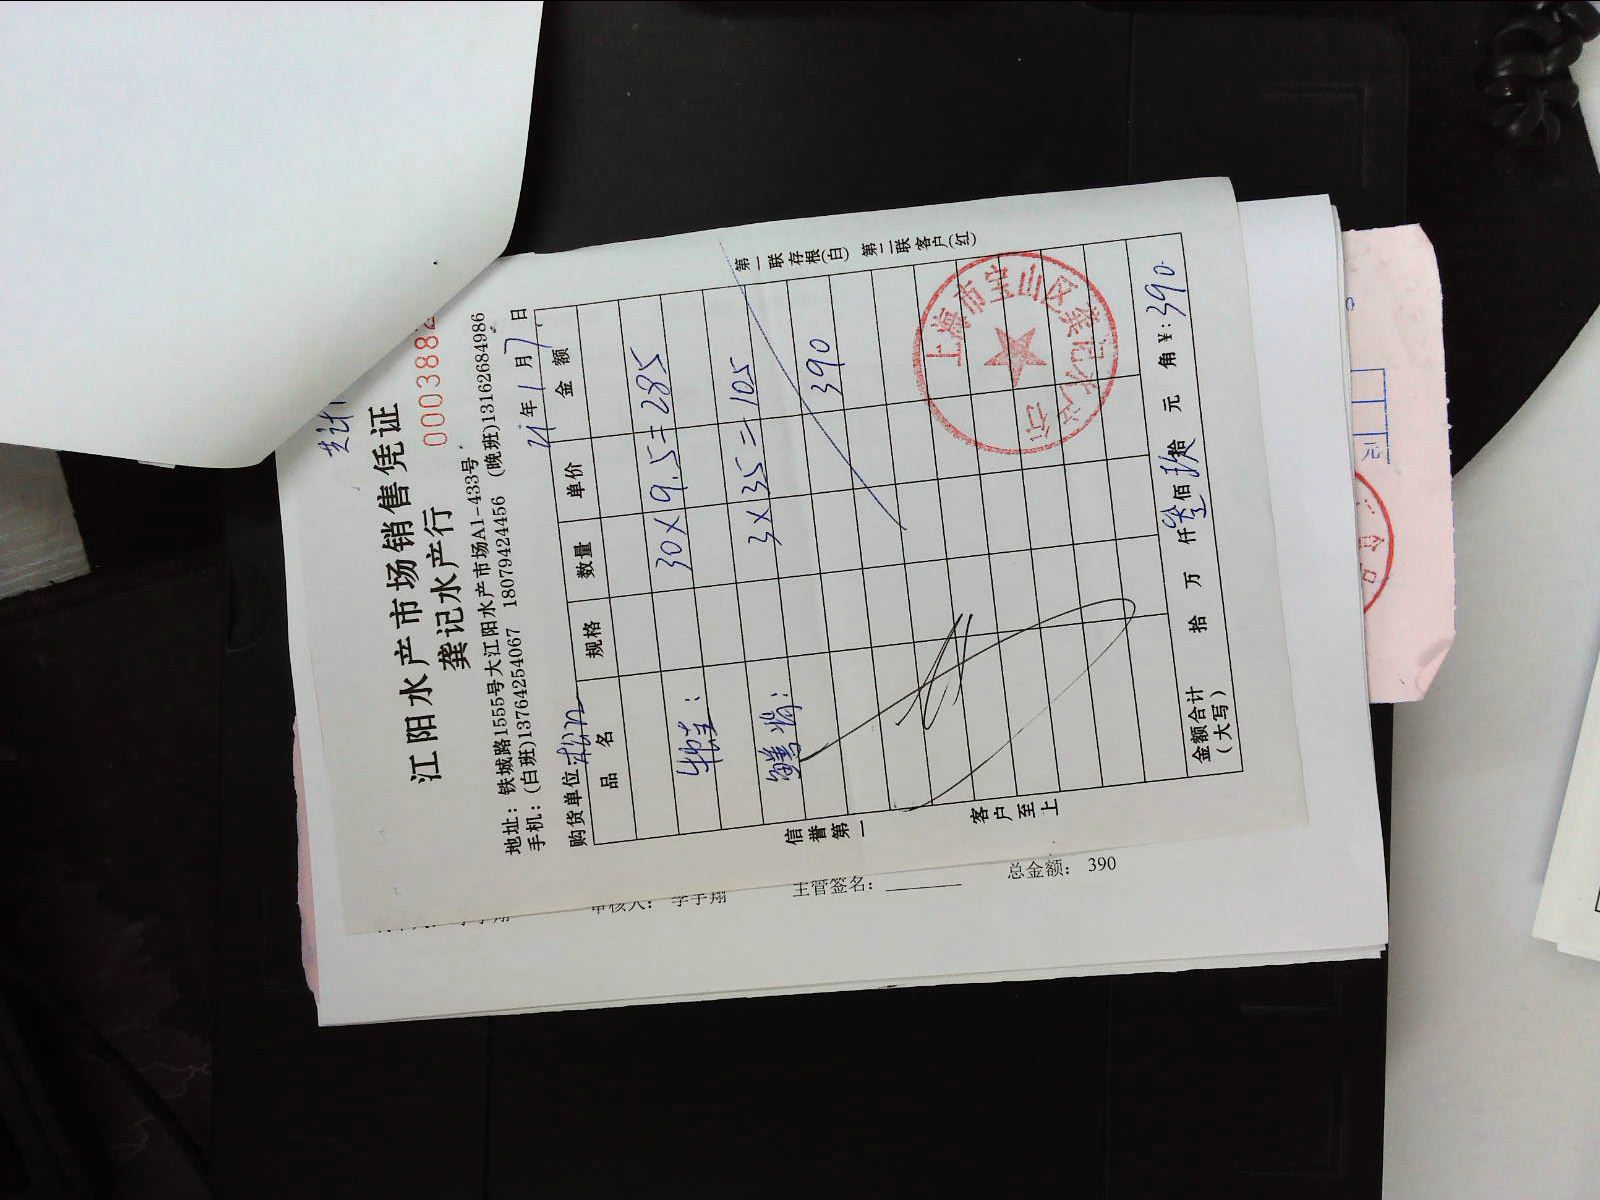 江阳水产市场销售凭证
龚记水产行
000388
地址：铁城路1555号大江阳水产市场A1-433号
手机：(白班)13764254067 18079424456 (晚班)13162684986
购货单位:松江 21年1月7日
品名 规格 数量 单价 金额
30×9.5=285
鳝 3×35=105
390
金额合计（大写） 拾 万 仟 叁佰 玖拾 元 角 ¥:390.
第一联存根(白) 第二联客户(红)
信誉第一
客户至上
上海市宝山区龚记水产行
审核人： 李宇翔
主管签名：
总金额： 390
元